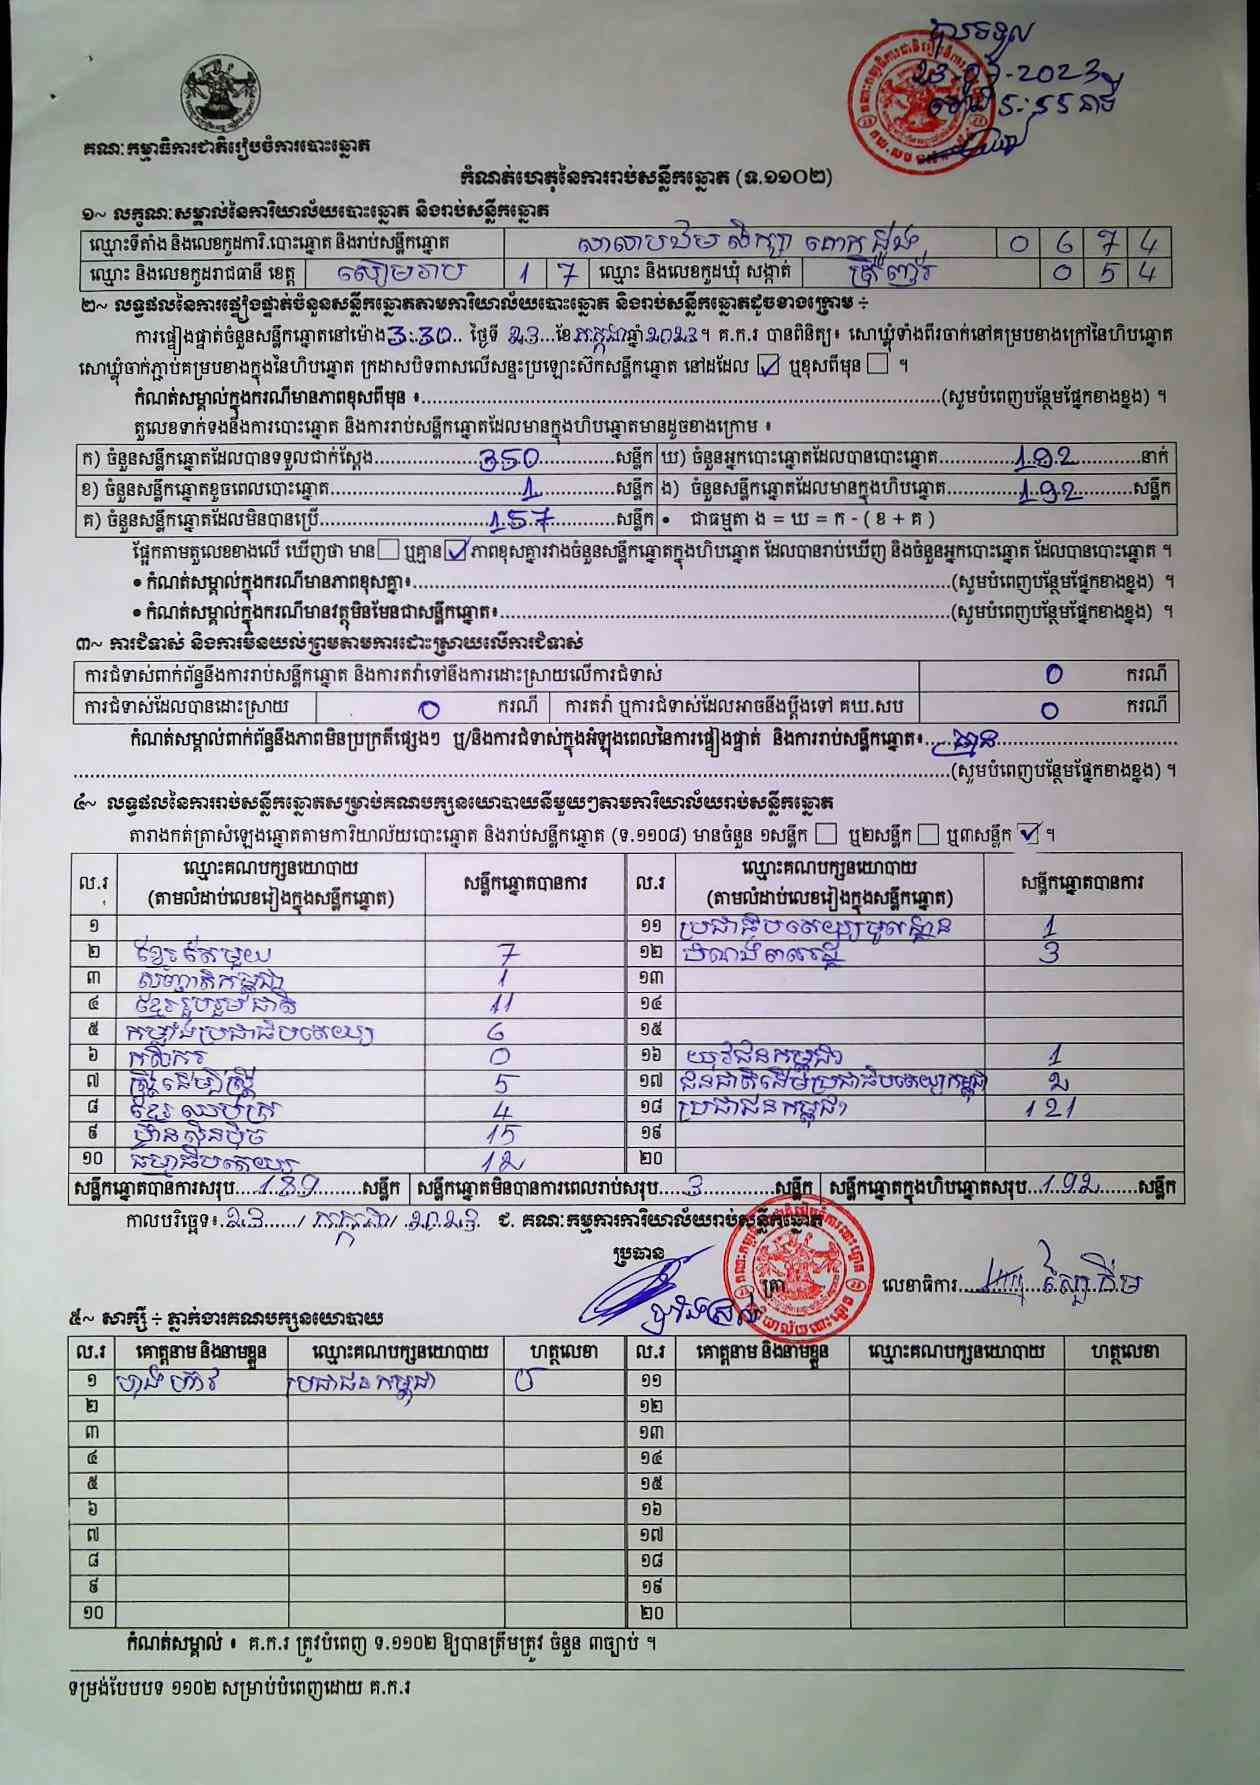 បានទទួល
23-07-2023
ម៉ោង 5:55 នាទី
គណៈកម្មាធិការជាតិរៀបចំការបោះឆ្នោត
កំណត់ហេតុនៃការរាប់សន្លឹកឆ្នោត (ទ.១១០២)
១~ លក្ខណៈសម្គាល់នៃការិយាល័យបោះឆ្នោត និងរាប់សន្លឹកឆ្នោត
ឈ្មោះទីតាំង និងលេខកូដការិ.បោះឆ្នោត និងរាប់សន្លឹកឆ្នោត សាលាបឋមសិក្សា គោកដូង 0 6 7 4
ឈ្មោះ និងលេខកូដរាជធានី ខេត្ត សៀមរាប 1 7 ឈ្មោះ និងលេខកូដឃុំ សង្កាត់ ត្រីញ័រ 0 5 4
២~ លទ្ធផលនៃការផ្ទៀងផ្ទាត់ចំនួនសន្លឹកឆ្នោតតាមការិយាល័យបោះឆ្នោត និងរាប់សន្លឹកឆ្នោតដូចខាងក្រោម ÷
ការផ្ទៀងផ្ទាត់ចំនួនសន្លឹកឆ្នោតនៅម៉ោង 3:30 ថ្ងៃទី 23 ខែ កក្កដា ឆ្នាំ 2023 ។ គ.ក.រ បានពិនិត្យ៖ សោឃ្លុំទាំងពីរចាក់នៅគម្របខាងក្រៅនៃហិបឆ្នោត
សោឃ្លុំចាក់ភ្ជាប់គម្របខាងក្នុងនៃហិបឆ្នោត ក្រដាសបិទពាសលើសន្ទះប្រឡោះស៊កសន្លឹកឆ្នោត នៅដដែល ☑ ឬខុសពីមុន ☐ ។
កំណត់សម្គាល់ក្នុងករណីមានភាពខុសពីមុន ៖..........(សូមបំពេញបន្ថែមផ្នែកខាងខ្នង) ។
តួលេខទាក់ទងនឹងការបោះឆ្នោត និងការរាប់សន្លឹកឆ្នោតដែលមានក្នុងហិបឆ្នោតមានដូចខាងក្រោម ៖
ក) ចំនួនសន្លឹកឆ្នោតដែលបានទទួលជាក់ស្តែង 350 សន្លឹក ឃ) ចំនួនអ្នកបោះឆ្នោតដែលបានបោះឆ្នោត 192 នាក់
ខ) ចំនួនសន្លឹកឆ្នោតខូចពេលបោះឆ្នោត 1 សន្លឹក ង) ចំនួនសន្លឹកឆ្នោតដែលមានក្នុងហិបឆ្នោត 192 សន្លឹក
គ) ចំនួនសន្លឹកឆ្នោតដែលមិនបានប្រើ 157 សន្លឹក • ជាធម្មតា ង = ឃ = ក - ( ខ + គ )
ផ្អែកតាមតួលេខខាងលើ ឃើញថា មាន ☐ ឬគ្មាន ☑ ភាពខុសគ្នារវាងចំនួនសន្លឹកឆ្នោតក្នុងហិបឆ្នោត ដែលបានរាប់ឃើញ និងចំនួនអ្នកបោះឆ្នោត ដែលបានបោះឆ្នោត ។
• កំណត់សម្គាល់ក្នុងករណីមានភាពខុសគ្នា៖..........(សូមបំពេញបន្ថែមផ្នែកខាងខ្នង) ។
• កំណត់សម្គាល់ក្នុងករណីមានវត្ថុមិនមែនជាសន្លឹកឆ្នោត៖..........(សូមបំពេញបន្ថែមផ្នែកខាងខ្នង) ។
៣~ ការជំទាស់ និងការមិនយល់ព្រមតាមការដោះស្រាយលើការជំទាស់
ការជំទាស់ពាក់ព័ន្ធនឹងការរាប់សន្លឹកឆ្នោត និងការតវ៉ាទៅនឹងការដោះស្រាយលើការជំទាស់ 0 ករណី
ការជំទាស់ដែលបានដោះស្រាយ 0 ករណី ការតវ៉ា ឬការជំទាស់ដែលអាចនឹងប្តឹងទៅ គឃ.សប 0 ករណី
កំណត់សម្គាល់ពាក់ព័ន្ធនឹងភាពមិនប្រក្រតីផ្សេងៗ ឬ/និងការជំទាស់ក្នុងអំឡុងពេលនៃការផ្ទៀងផ្ទាត់ និងការរាប់សន្លឹកឆ្នោត៖ គ្មាន
..........(សូមបំពេញបន្ថែមផ្នែកខាងខ្នង) ។
៤~ លទ្ធផលនៃការរាប់សន្លឹកឆ្នោតសម្រាប់គណបក្សនយោបាយនីមួយៗតាមការិយាល័យរាប់សន្លឹកឆ្នោត
តារាងកត់ត្រាសំឡេងឆ្នោតតាមការិយាល័យបោះឆ្នោត និងរាប់សន្លឹកឆ្នោត (ទ.១១០៨) មានចំនួន ១សន្លឹក ☐ ឬ២សន្លឹក ☐ ឬ៣សន្លឹក ☑ ។
ល.រ ឈ្មោះគណបក្សនយោបាយ (តាមលំដាប់លេខរៀងក្នុងសន្លឹកឆ្នោត) សន្លឹកឆ្នោតបានការ ល.រ ឈ្មោះគណបក្សនយោបាយ (តាមលំដាប់លេខរៀងក្នុងសន្លឹកឆ្នោត) សន្លឹកឆ្នោតបានការ
១ ១១ ប្រជាធិបតេយ្យមូលដ្ឋាន 1
២ ខ្មែរតែមួយ 7 ១២ ដំណង់ពលរដ្ឋ 3
៣ សញ្ជាតិកម្ពុជា 1 ១៣
៤ ខ្មែររួបរួមជាតិ 11 ១៤
៥ កម្លាំងប្រជាធិបតេយ្យ 6 ១៥
៦ កសិករ 0 ១៦ យុវជនកម្ពុជា 1
៧ ស្ត្រីដើម្បីស្ត្រី 5 ១៧ ជនជាតិដើមប្រជាធិបតេយ្យកម្ពុជា 2
៨ ខ្មែរឈប់ក្រ 4 ១៨ ប្រជាជនកម្ពុជា 121
៩ ហ្វ៊ុនស៊ិនប៉ិច 15 ១៩
១០ ធម្មាធិបតេយ្យ 12 ២០
សន្លឹកឆ្នោតបានការសរុប 189 សន្លឹក សន្លឹកឆ្នោតមិនបានការពេលរាប់សរុប 3 សន្លឹក សន្លឹកឆ្នោតក្នុងហិបឆ្នោតសរុប 192 សន្លឹក
កាលបរិច្ឆេទ៖ 23 / កក្កដា / 2023 ជ. គណៈកម្មការការិយាល័យរាប់សន្លឹកឆ្នោត
ប្រធាន
ត្រា លេខាធិការ
៥~ សាក្សី ÷ ភ្នាក់ងារគណបក្សនយោបាយ
ល.រ គោត្តនាម និងនាមខ្លួន ឈ្មោះគណបក្សនយោបាយ ហត្ថលេខា ល.រ គោត្តនាម និងនាមខ្លួន ឈ្មោះគណបក្សនយោបាយ ហត្ថលេខា
១ ប្រជាជនកម្ពុជា ១១
២ ១២
៣ ១៣
៤ ១៤
៥ ១៥
៦ ១៦
៧ ១៧
៨ ១៨
៩ ១៩
១០ ២០
កំណត់សម្គាល់ ៖ គ.ក.រ ត្រូវបំពេញ ទ.១១០២ ឱ្យបានត្រឹមត្រូវ ចំនួន ៣ច្បាប់ ។
ទម្រង់បែបបទ ១១០២ សម្រាប់បំពេញដោយ គ.ក.រ